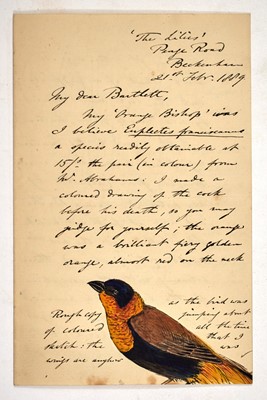 'The Lilies'
Penge Road
Beckenham
21st Febr. 1889
My dear Bartlett,
My 'Orange Bishop' was
I believe Euplectes franciscanus
a species readily obtainable at
15/- the pair (in colour) from
Mr. Abrahams. I made a
coloured drawing of the cock
before his death, so you may
judge for yourself; the orange
was a brilliant fiery golden
orange, almost red on the neck
Rough copy
of coloured
sketch: the
wings are
as the bird was
jumping about
all the time
that I
was